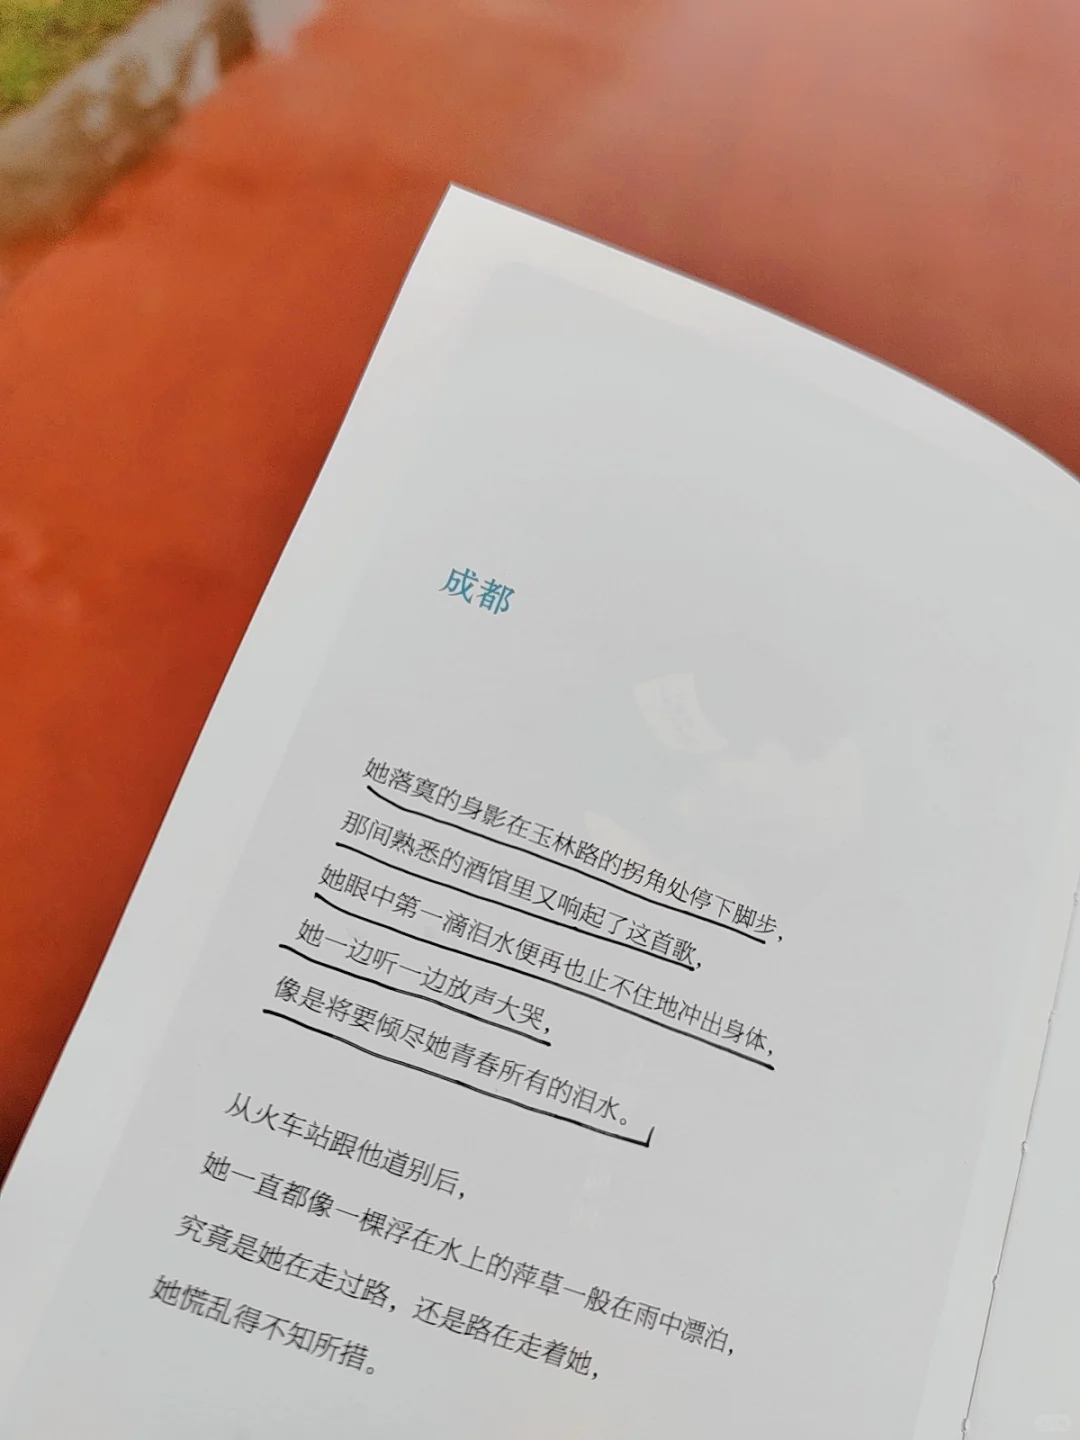 成都
她落寞的身影在玉林路的拐角处停下脚步，
那间熟悉的酒馆里又响起了这首歌，
她眼中第一滴泪水便再也止不住地冲出身体，
她一边听一边放声大哭，
像是将要倾尽她青春所有的泪水。
从火车站跟他道别后，
她一直都像一棵浮在水上的萍草一般在雨中漂泊，
究竟是她在走过路，还是路在走着她，
她慌乱得不知所措。